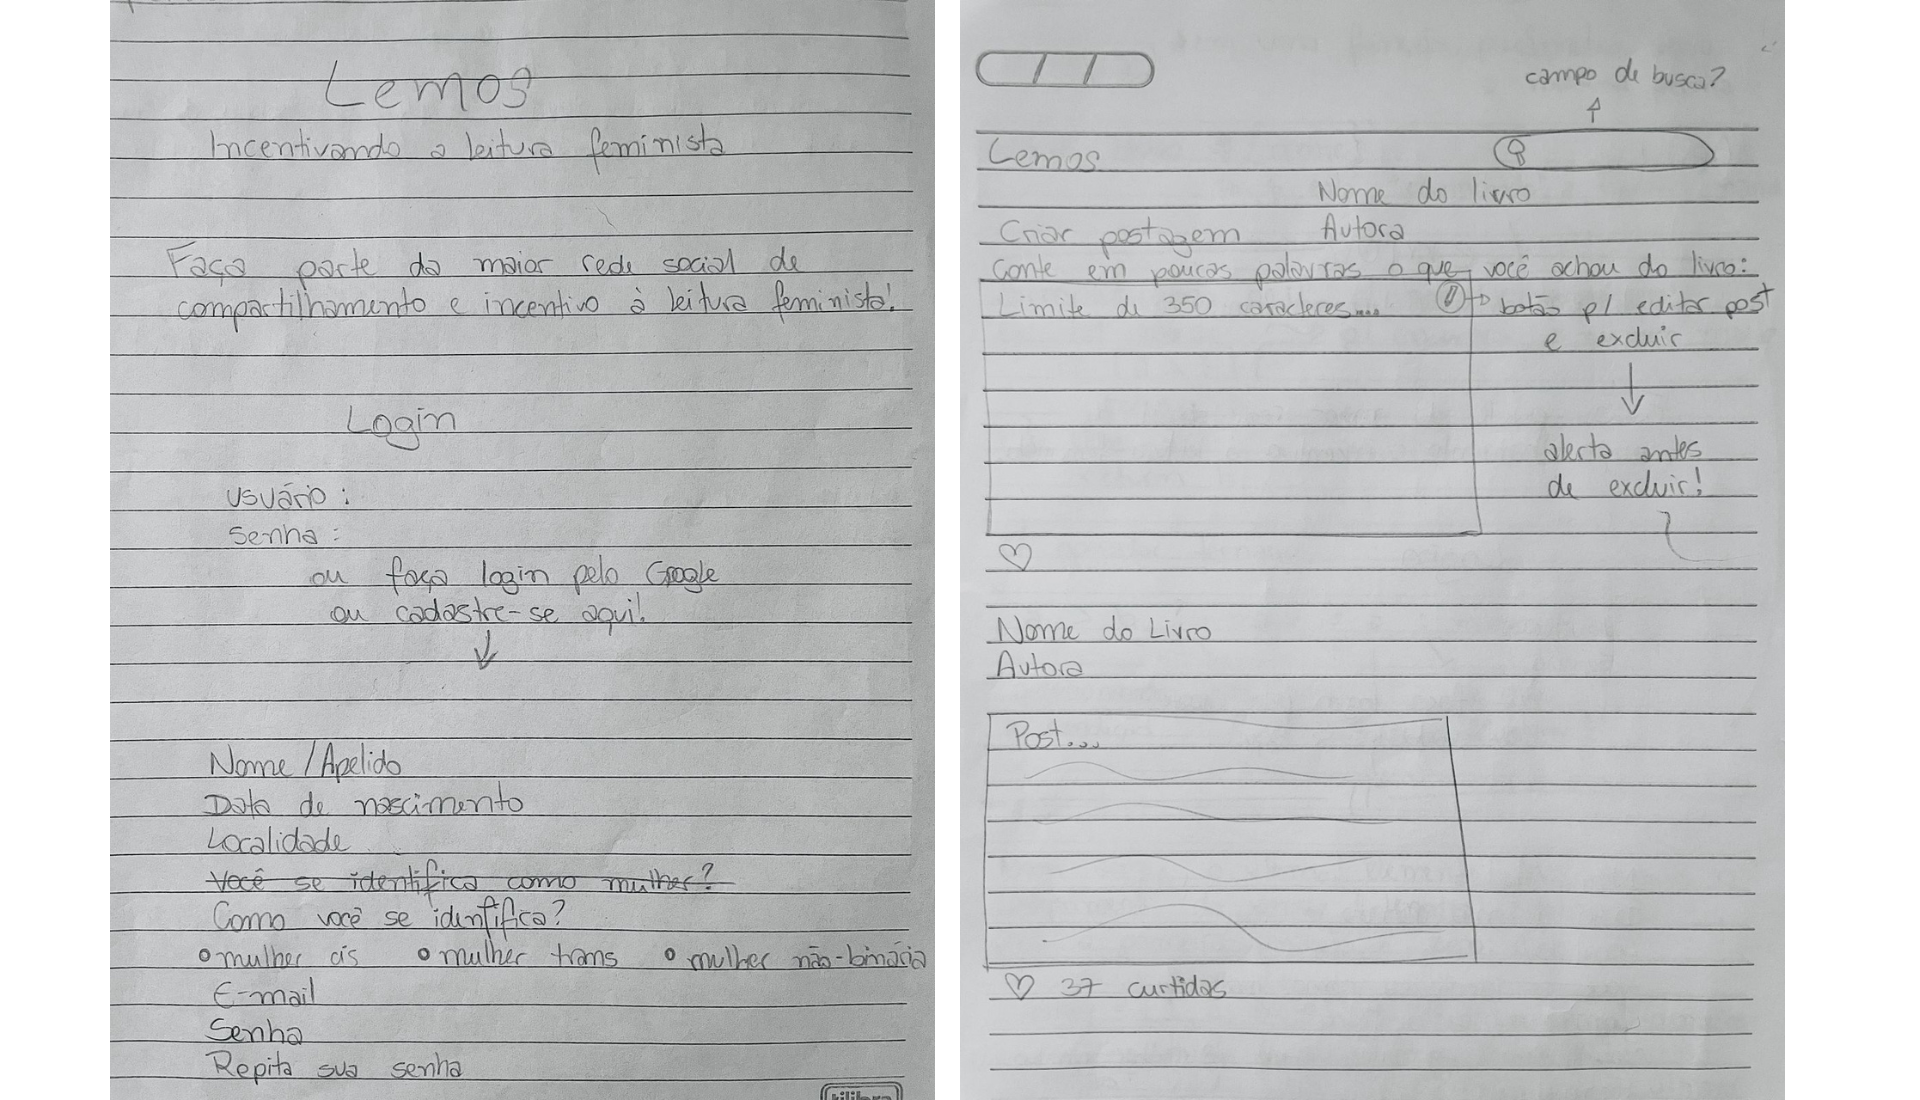 Lemos
Incentivando a leitura feminista
Faça parte da maior rede social de
compartilhamento e incentivo à leitura feminista!
Login
usuário:
senha:
ou faça login pelo Google
ou cadastre-se aqui!
Nome / Apelido
Data de nascimento
Localidade
Você se identifica como mulher?
Como você se identifica?
mulher cis mulher trans mulher não-binária
E-mail
Senha
Repita sua senha
tilibra
campo de busca?
Lemos
Nome do livro
Criar postagem Autora
Conte em poucas palavras o que você achou do livro:
Limite de 350 caracteres... botão p/ editar post
e excluir
alerta antes
de excluir!
Nome do Livro
Autora
Post...
37 curtidas